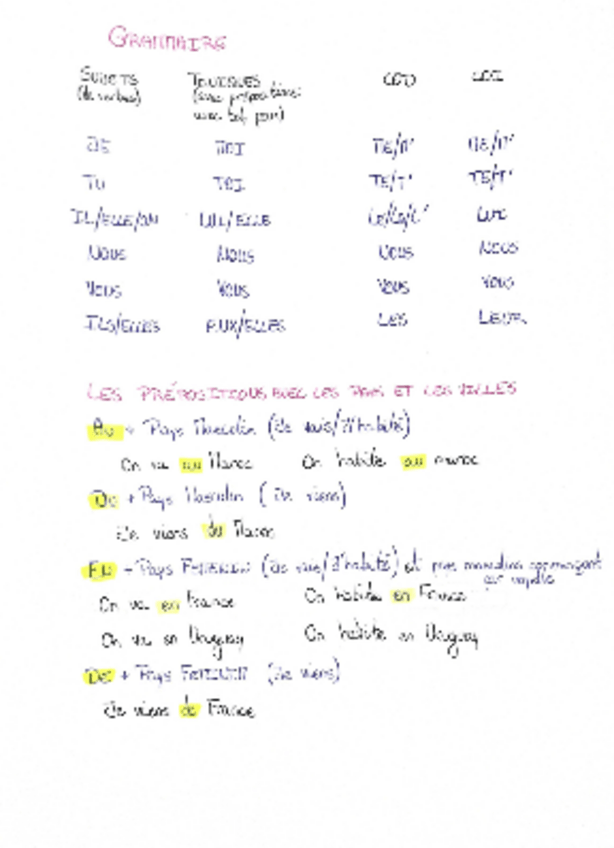 GRAMMAIRE
SUJETS TONIQUES COD COI
(de verbes) (avec prépositions:
avec, chez, pour)
JE MOI ME/M' ME/M'
TU TOI TE/T' TE/T'
IL/ELLE/ON LUI/ELLE LE/LA/L' LUI
NOUS NOUS NOUS NOUS
VOUS VOUS VOUS VOUS
ILS/ELLES EUX/ELLES LES LEUR
LES PRÉPOSITIONS AVEC LES PAYS ET LES VILLES
AU + Pays Masculin (Je vais/J'habite)
On va au Maroc On habite au Maroc
DU + Pays Masculin (Je viens)
Je viens du Maroc
EN + Pays FÉMININ (Je vais/J'habite) et pays masculins commençant
par voyelle
On va en France On habite en France
On va en Uruguay On habite en Uruguay
DE + Pays FÉMININ (Je viens)
Je viens de France